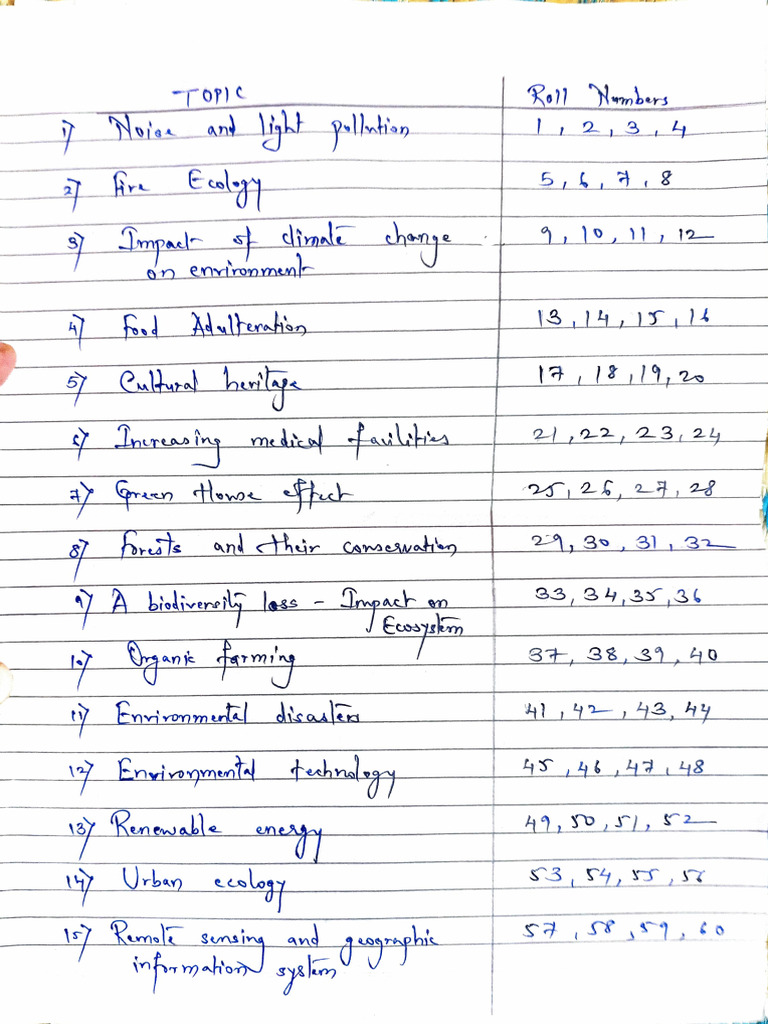 TOPIC Roll Numbers
1) Noise and light pollution 1, 2, 3, 4
2) Fire Ecology 5, 6, 7, 8
3) Impact of climate change 9, 10, 11, 12
on environment
4) Food Adulteration 13, 14, 15, 16
5) Cultural heritage 17, 18, 19, 20
6) Increasing medical facilities 21, 22, 23, 24
7) Green House effect 25, 26, 27, 28
8) Forests and their conservation 29, 30, 31, 32
9) A biodiversity loss - Impact on 33, 34, 35, 36
Ecosystem
10) Organic farming 37, 38, 39, 40
11) Environmental disasters 41, 42, 43, 44
12) Environmental technology 45, 46, 47, 48
13) Renewable energy 49, 50, 51, 52
14) Urban ecology 53, 54, 55, 56
15) Remote sensing and geographic 57, 58, 59, 60
information system